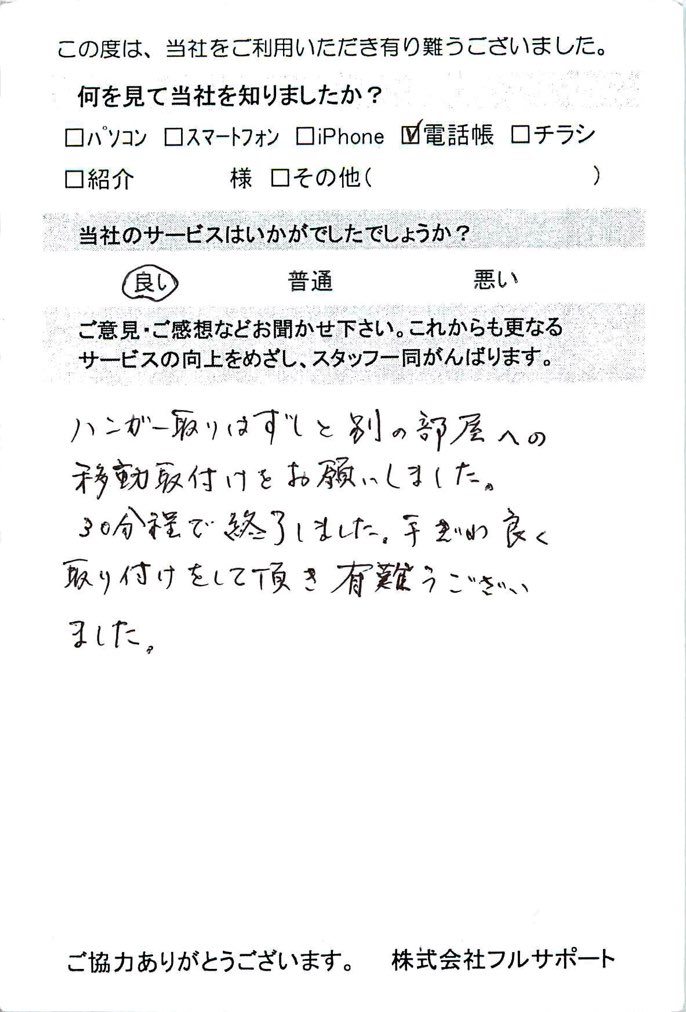 この度は、当社をご利用いただき有り難うございました。
何を見て当社を知りましたか？
□パソコン □スマートフォン □iPhone ☑電話帳 □チラシ
□紹介　　　　様 □その他(　　　　　　　　　)
当社のサービスはいかがでしたでしょうか？
良い　　　　普通　　　　悪い
ご意見・ご感想などお聞かせ下さい。これからも更なる
サービスの向上をめざし、スタッフ一同がんばります。
ハンガー取りはずしと別の部屋への
移動取付けをお願いしました。
30分程で終了しました。手ぎわ良く
取り付けをして頂き有難うござい
ました。
ご協力ありがとうございます。　株式会社フルサポート